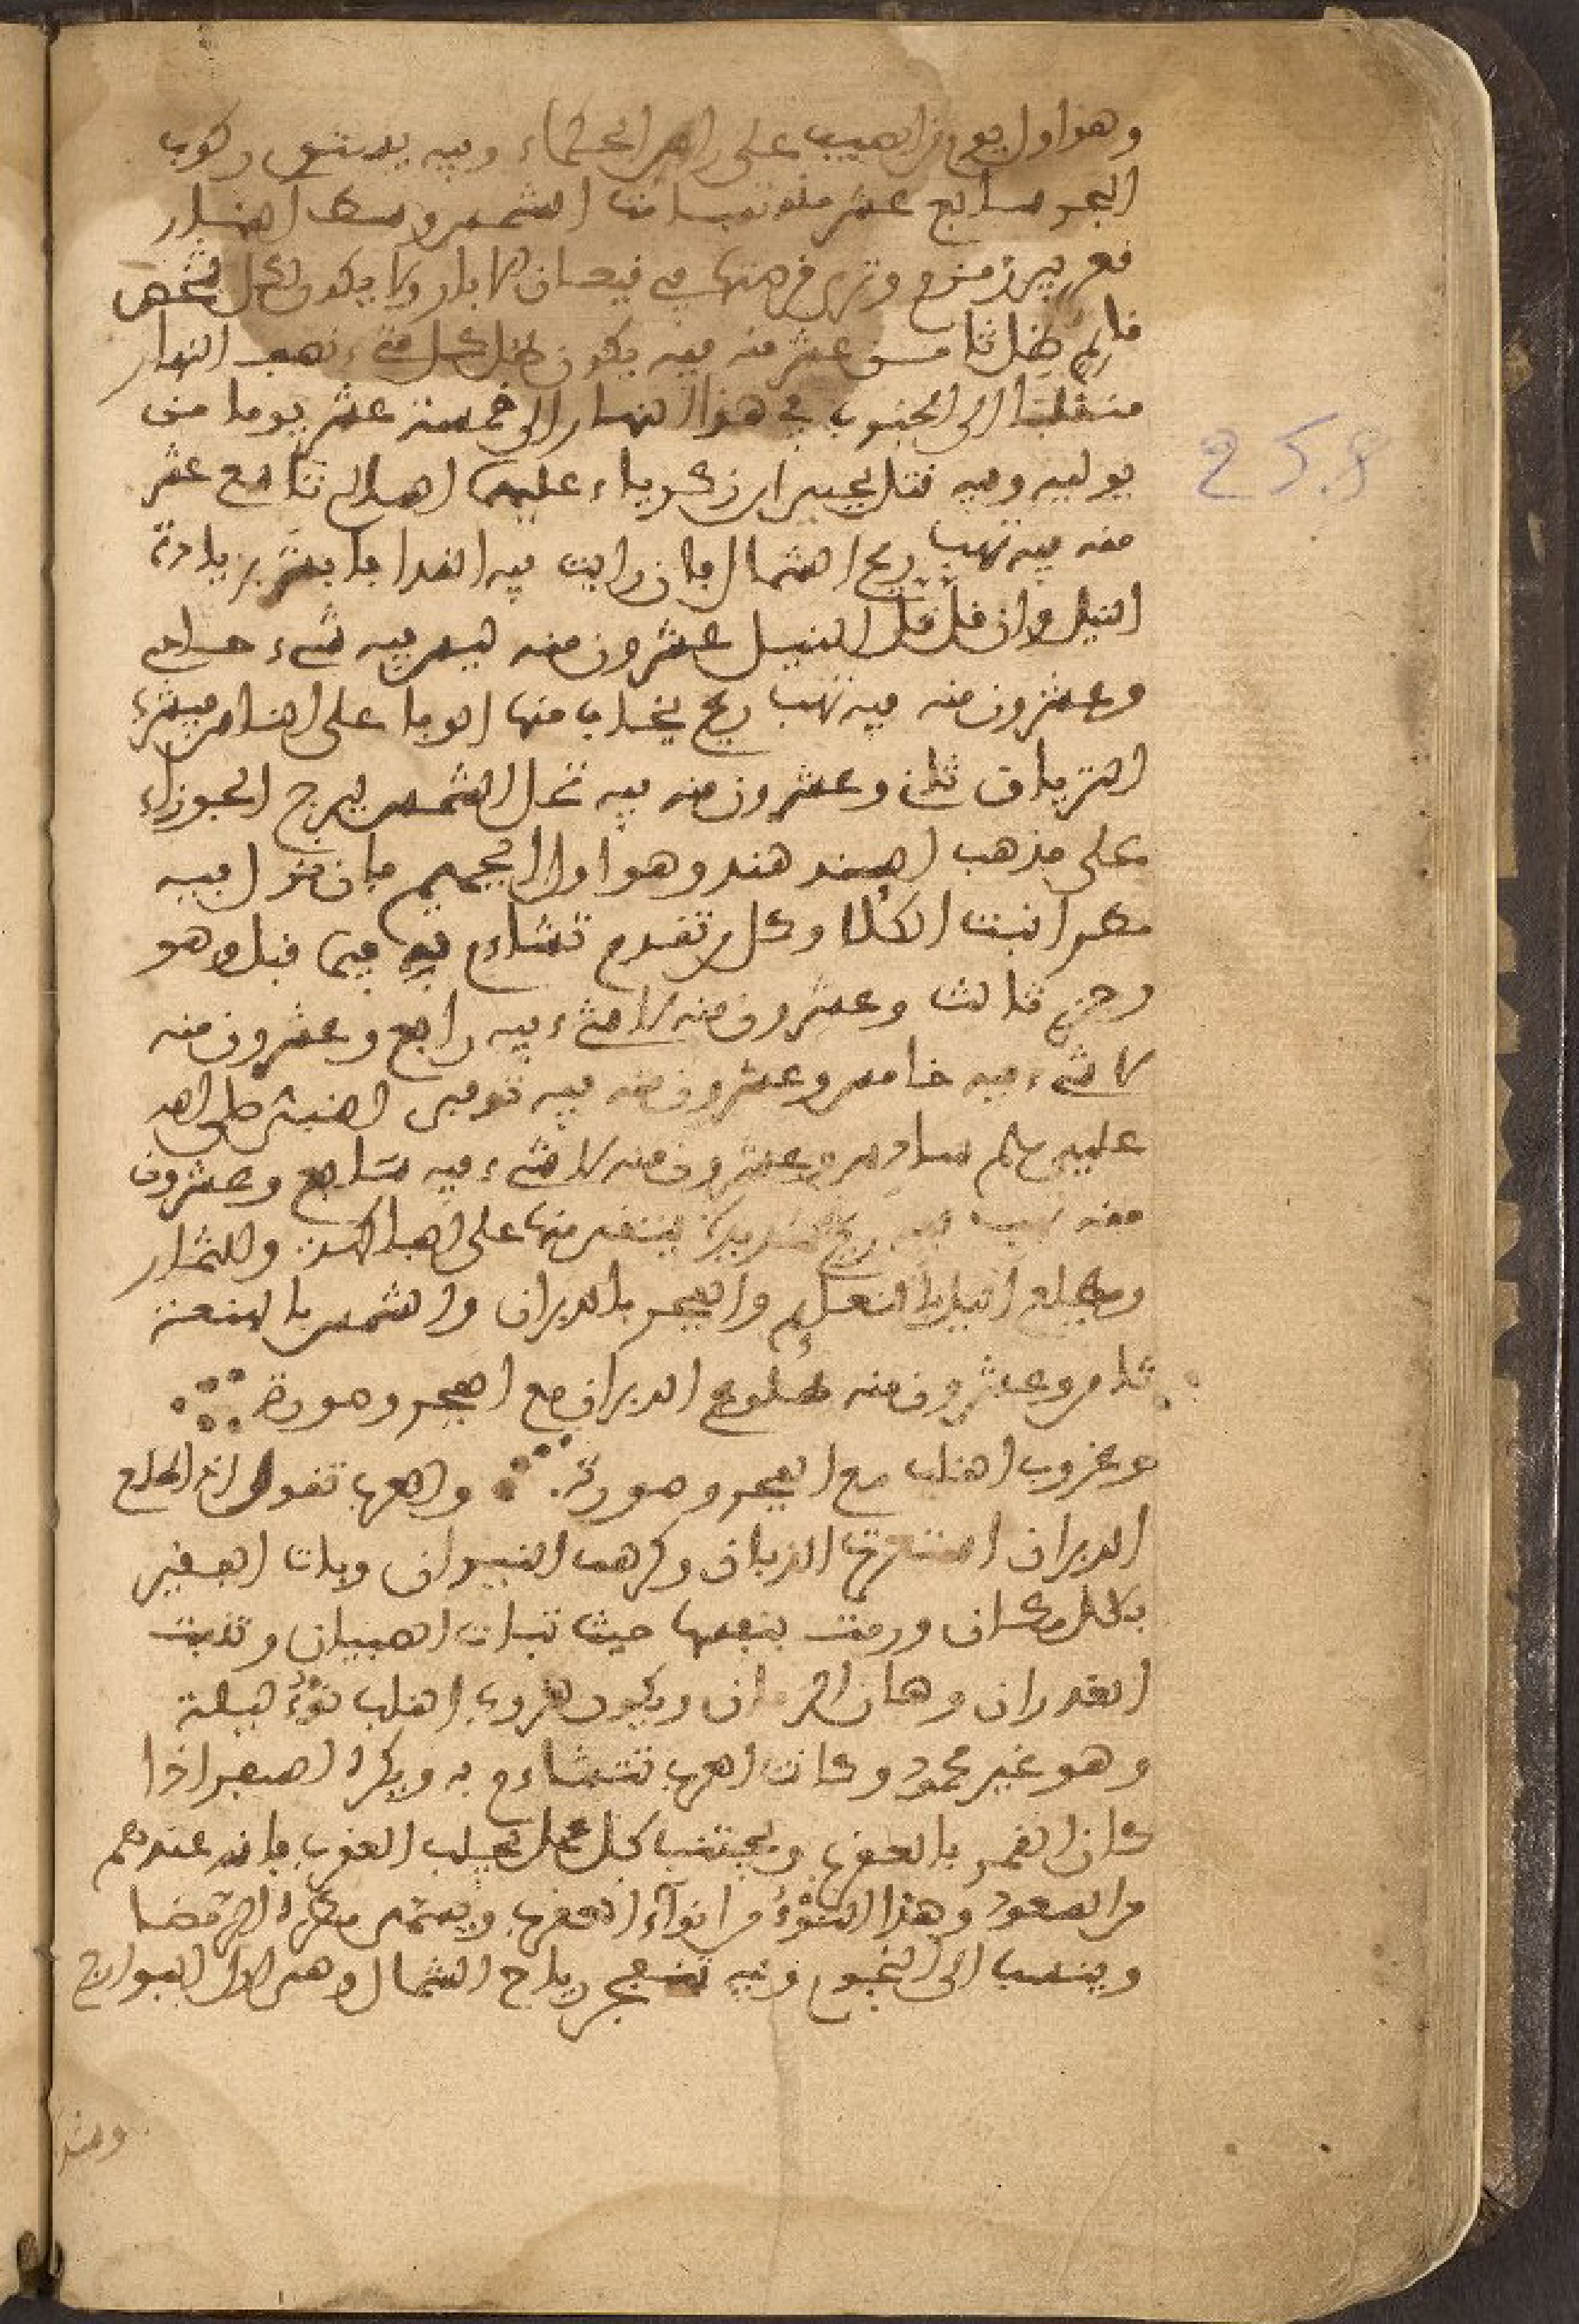 وهو اول يوم من الصيف على راي الحكماء وفيه يستحق ركوب
البحر سابع عشر منه تسامت الشمس وسط النهار
قعر بير زمزم وترى قرصها في قيعان الابار ولا يكون لكل شخص
قايم ظل ثامن عشر منه فيه يكون ظل كل شيء نصف النهار
منقلبا الى الجنوب في هذا النهار الى خمسة عشر يوما من
يوليه وفيه قتل يحيى ابن زكرياء عليهما السلام تاسع عشر
منه فيه تهب ريح الشمال فان رايت فيه الندا فابشر بزيادة
النيل وان قل قل النيل عشرون منه ليس فيه شيء حادي
وعشرون منه فيه تهب ريح يخاف منها الوبا على الناس فيشرب
الترياق ثاني وعشرون منه فيه تحل الشمس ببرج الجوزاء
على مذهب السند هند وهو اول الجحيم فان نزل فيه
مطر انبت الكلا وكل تقدم تشاءم به فيما قبل وهو
رجز ثالث وعشرون منه لا شيء فيه رابع وعشرون منه
لا شيء فيه خامس وعشرون منه فيه توفي النبي صلى الله
عليه وسلم سادس وعشرون منه لا شيء فيه سابع وعشرون
منه تهب فيه ريح شديدة ينفس منها على الفاكهة والثمار
ويطلع الليل بالنعايم والفجر بالدبران والشمس بالهنعة
ثامن وعشرون منه طلوع الدبران مع الفجر وصورته
وغروب القلب مع الفجر وصورته والعرب تقول اذا طلع
الدبران استعرت الذبان وكرهت النيران وبات الفقير
بكل مكان ورمت بنفسها حيث شات الصبيان ويبست
الغدران وهان الرمان ويكون غروب القلب نوء ليلة
وهو غير محمود وكانت العرب تتشاءم به ويكره السفر اذا
كان القمر بالعقرب ويجتنب كل عمل بقلب العقرب فانه عندهم
من السعود وهذا النوء من انواء العقرب ويسمى مطره الرمضا
وينسب الى النجوم وفيه تنفجر رياح الشمال وهي اول البوارح
ومنذ